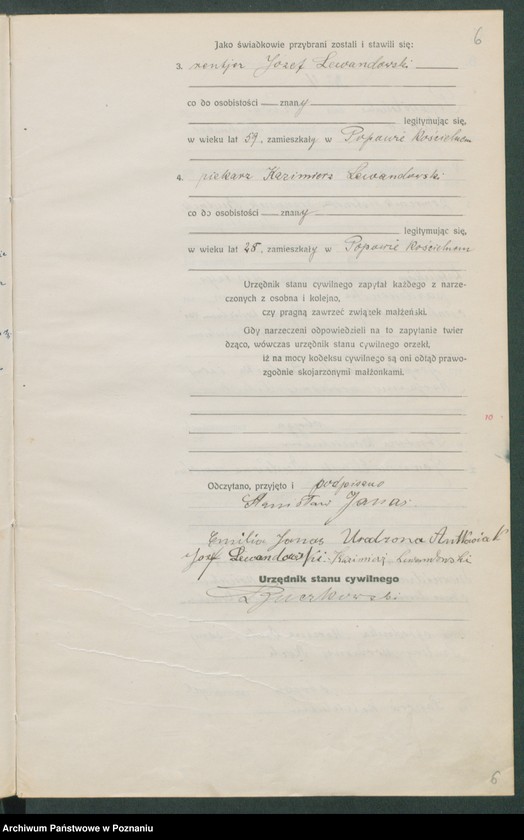 6
Jako świadkowie przybrani zostali i stawili się:
3. rentjer Jozef Lewandowski
co do osobistości znany
legitymując się,
w wieku lat 59, zamieszkały w Popowie Kościelnem
4. piekarz Kazimierz Lewandowski
co do osobistości znany
legitymując się,
w wieku lat 28, zamieszkały w Popowie Kościelnem
Urzędnik stanu cywilnego zapytał każdego z narze-
czonych z osobna i kolejno,
czy pragną zawrzeć związek małżeński.
Gdy narzeczeni odpowiedzieli na to zapytanie twier
dząco, wówczas urzędnik stanu cywilnego orzekł,
iż na mocy kodeksu cywilnego są oni odtąd prawo-
zgodnie skojarzonymi małżonkami.
10
Odczytano, przyjęto i podpisano
Stanisław Janas
Emilia Janas Urodzona Antkowiak
Jozef Lewandowski Kazimierz Lewandowski
Urzędnik stanu cywilnego
6
Archiwum Państwowe w Poznaniu